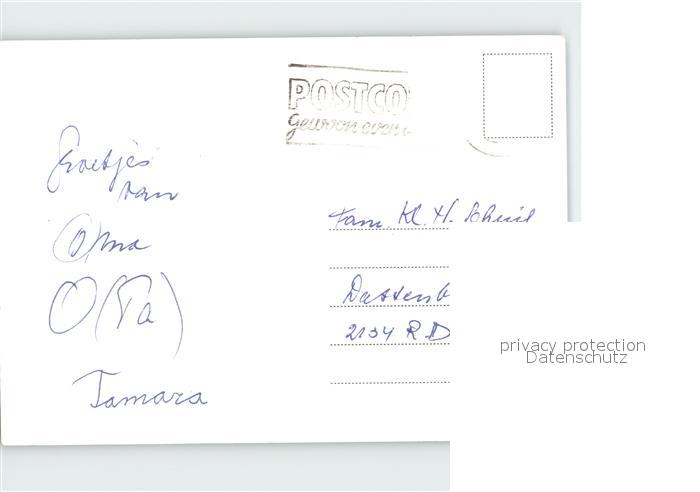 POSTCO
Gewoon even
Groetjes
van
Oma
O(Pa)
Tamara
Fam. Kl. H.
Dassenb
2134 RD
privacy protection
Datenschutz